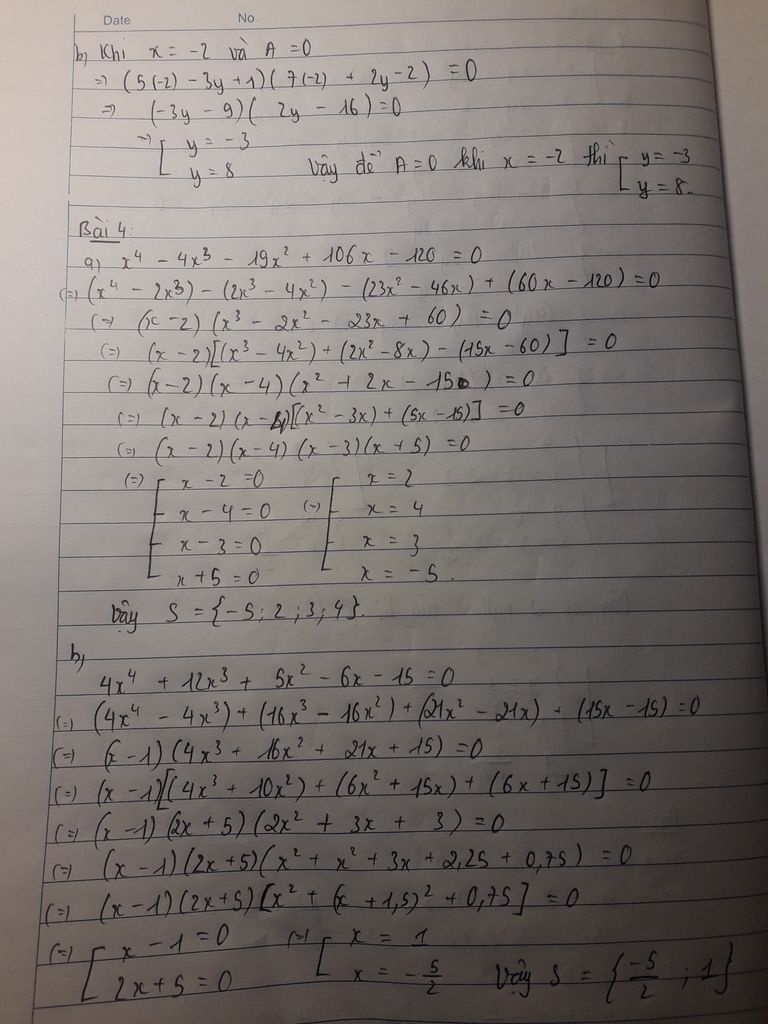 Date No.
b, Khi x = -2 và A = 0
=> (5(-2) - 3y + 1)(7(-2) + 2y - 2) = 0
=> (-3y - 9)(2y - 16) = 0
=> [ y = -3
y = 8 Vậy để A = 0 khi x = -2 thì [ y = -3
y = 8.
Bài 4:
a, x⁴ - 4x³ - 19x² + 106x - 120 = 0
(=) (x⁴ - 2x³) - (2x³ - 4x²) - (23x² - 46x) + (60x - 120) = 0
(=) (x - 2)(x³ - 2x² - 23x + 60) = 0
(=) (x - 2)[(x³ - 4x²) + (2x² - 8x) - (15x - 60)] = 0
(=) (x - 2)(x - 4)(x² + 2x - 15) = 0
(=) (x - 2)(x - 4)[(x² - 3x) + (5x - 15)] = 0
(=) (x - 2)(x - 4)(x - 3)(x + 5) = 0
(=) [ x - 2 = 0 [ x = 2
x - 4 = 0 (=) x = 4
x - 3 = 0 x = 3
x + 5 = 0 x = -5.
Vậy S = {-5; 2; 3; 4}.
b,
4x⁴ + 12x³ + 5x² - 6x - 15 = 0
(=) (4x⁴ - 4x³) + (16x³ - 16x²) + (21x² - 21x) + (15x - 15) = 0
(=) (x - 1)(4x³ + 16x² + 21x + 15) = 0
(=) (x - 1)[(4x³ + 10x²) + (6x² + 15x) + (6x + 15)] = 0
(=) (x - 1)(2x + 5)(2x² + 3x + 3) = 0
(=) (x - 1)(2x + 5)(x² + x² + 3x + 2,25 + 0,75) = 0
(=) (x - 1)(2x + 5)[x² + (x + 1,5)² + 0,75] = 0
(=) [ x - 1 = 0 (=) [ x = 1
2x + 5 = 0 x = -5/2 Vậy S = {-5/2; 1}